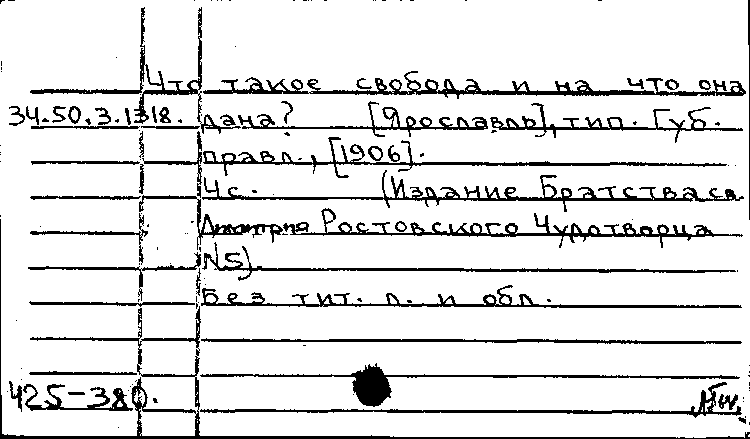 Что такое свобода и на что она
34.50.3.1318. дана? [Ярославль], тип. Губ.
правл., [1906].
4с. (Издание Братства св.
Дмитрия Ростовского Чудотворца
N5).
Без тит. л. и обл.
425-380.